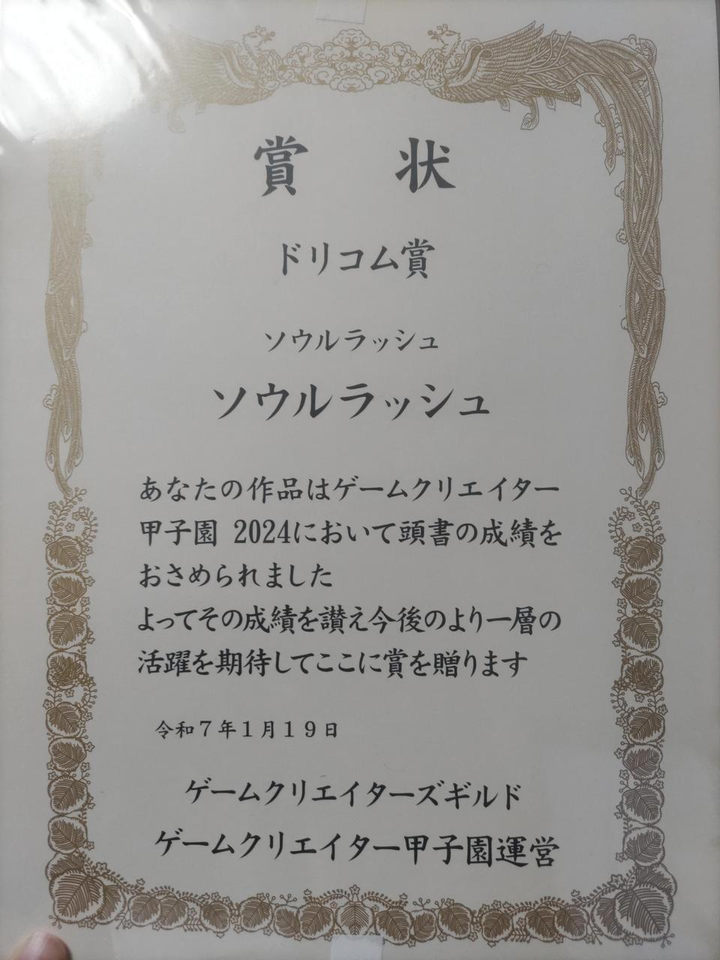 賞状
ドリコム賞
ソウルラッシュ
ソウルラッシュ
あなたの作品はゲームクリエイター
甲子園 2024において頭書の成績を
おさめられました
よってその成績を讃え今後のより一層の
活躍を期待してここに賞を贈ります
令和7年1月19日
ゲームクリエイターズギルド
ゲームクリエイター甲子園運営